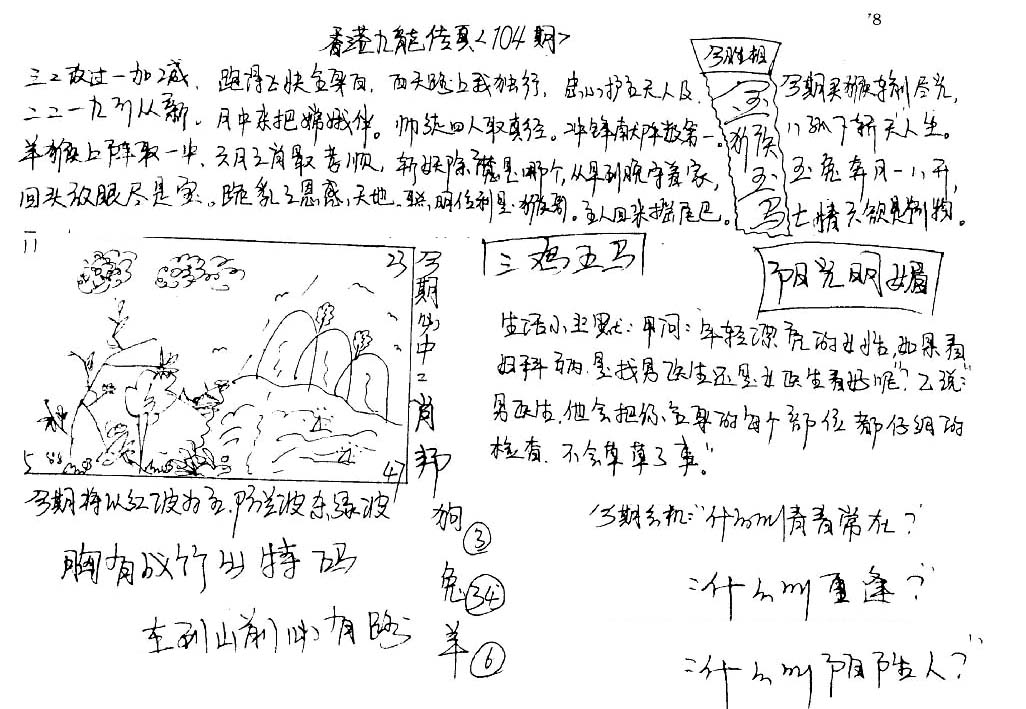 78
香港九龍传真<104期>
三二改过一加2减，跑得上快全身白，西天路上我独行，忠心护主天人及
二二一九引从新。月中来把嫦娥伴。师徒四人取真经。冲锋献阵数第一。
羊猴上阵取一中，六月之首最孝顺，斩妖除魔是哪个，从早到晚守着家，
回头放眼尽是宝。跪乳之恩感天地。聪明伶利是猴哥。主人回来摇尾巴。
今期买猴
玉兔奔月
今胜相
玉
猴
玉
马
23
5
47
今期必中二肖
三鸡五马
阳光明媚
生活小幽默：甲问："年轻漂亮的女性，如果看
妇科病，是找男医生还是女医生看好呢"？乙说："
男医生，他会把你全身的每个部位都仔细的
检查，不会草草了事。"
今期将以红波为主，防兰波杀绿波
胸有成竹出特码
车到山前必有路
狗③
兔㉞
羊⑥
今期玄机："什么叫青春常在？"
："什么叫重逢？"
："什么叫阴阳人？"